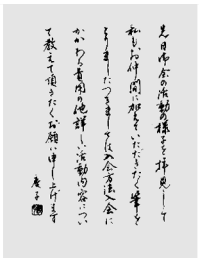 先日御会の活動の様子を拝見しまして
私もお仲間に加えていただきたく筆を
とりましたつきましては入会方法入会に
かかわる費用の他詳しい活動内容につい
て教えて頂きたくお願い申し上げます
慶子